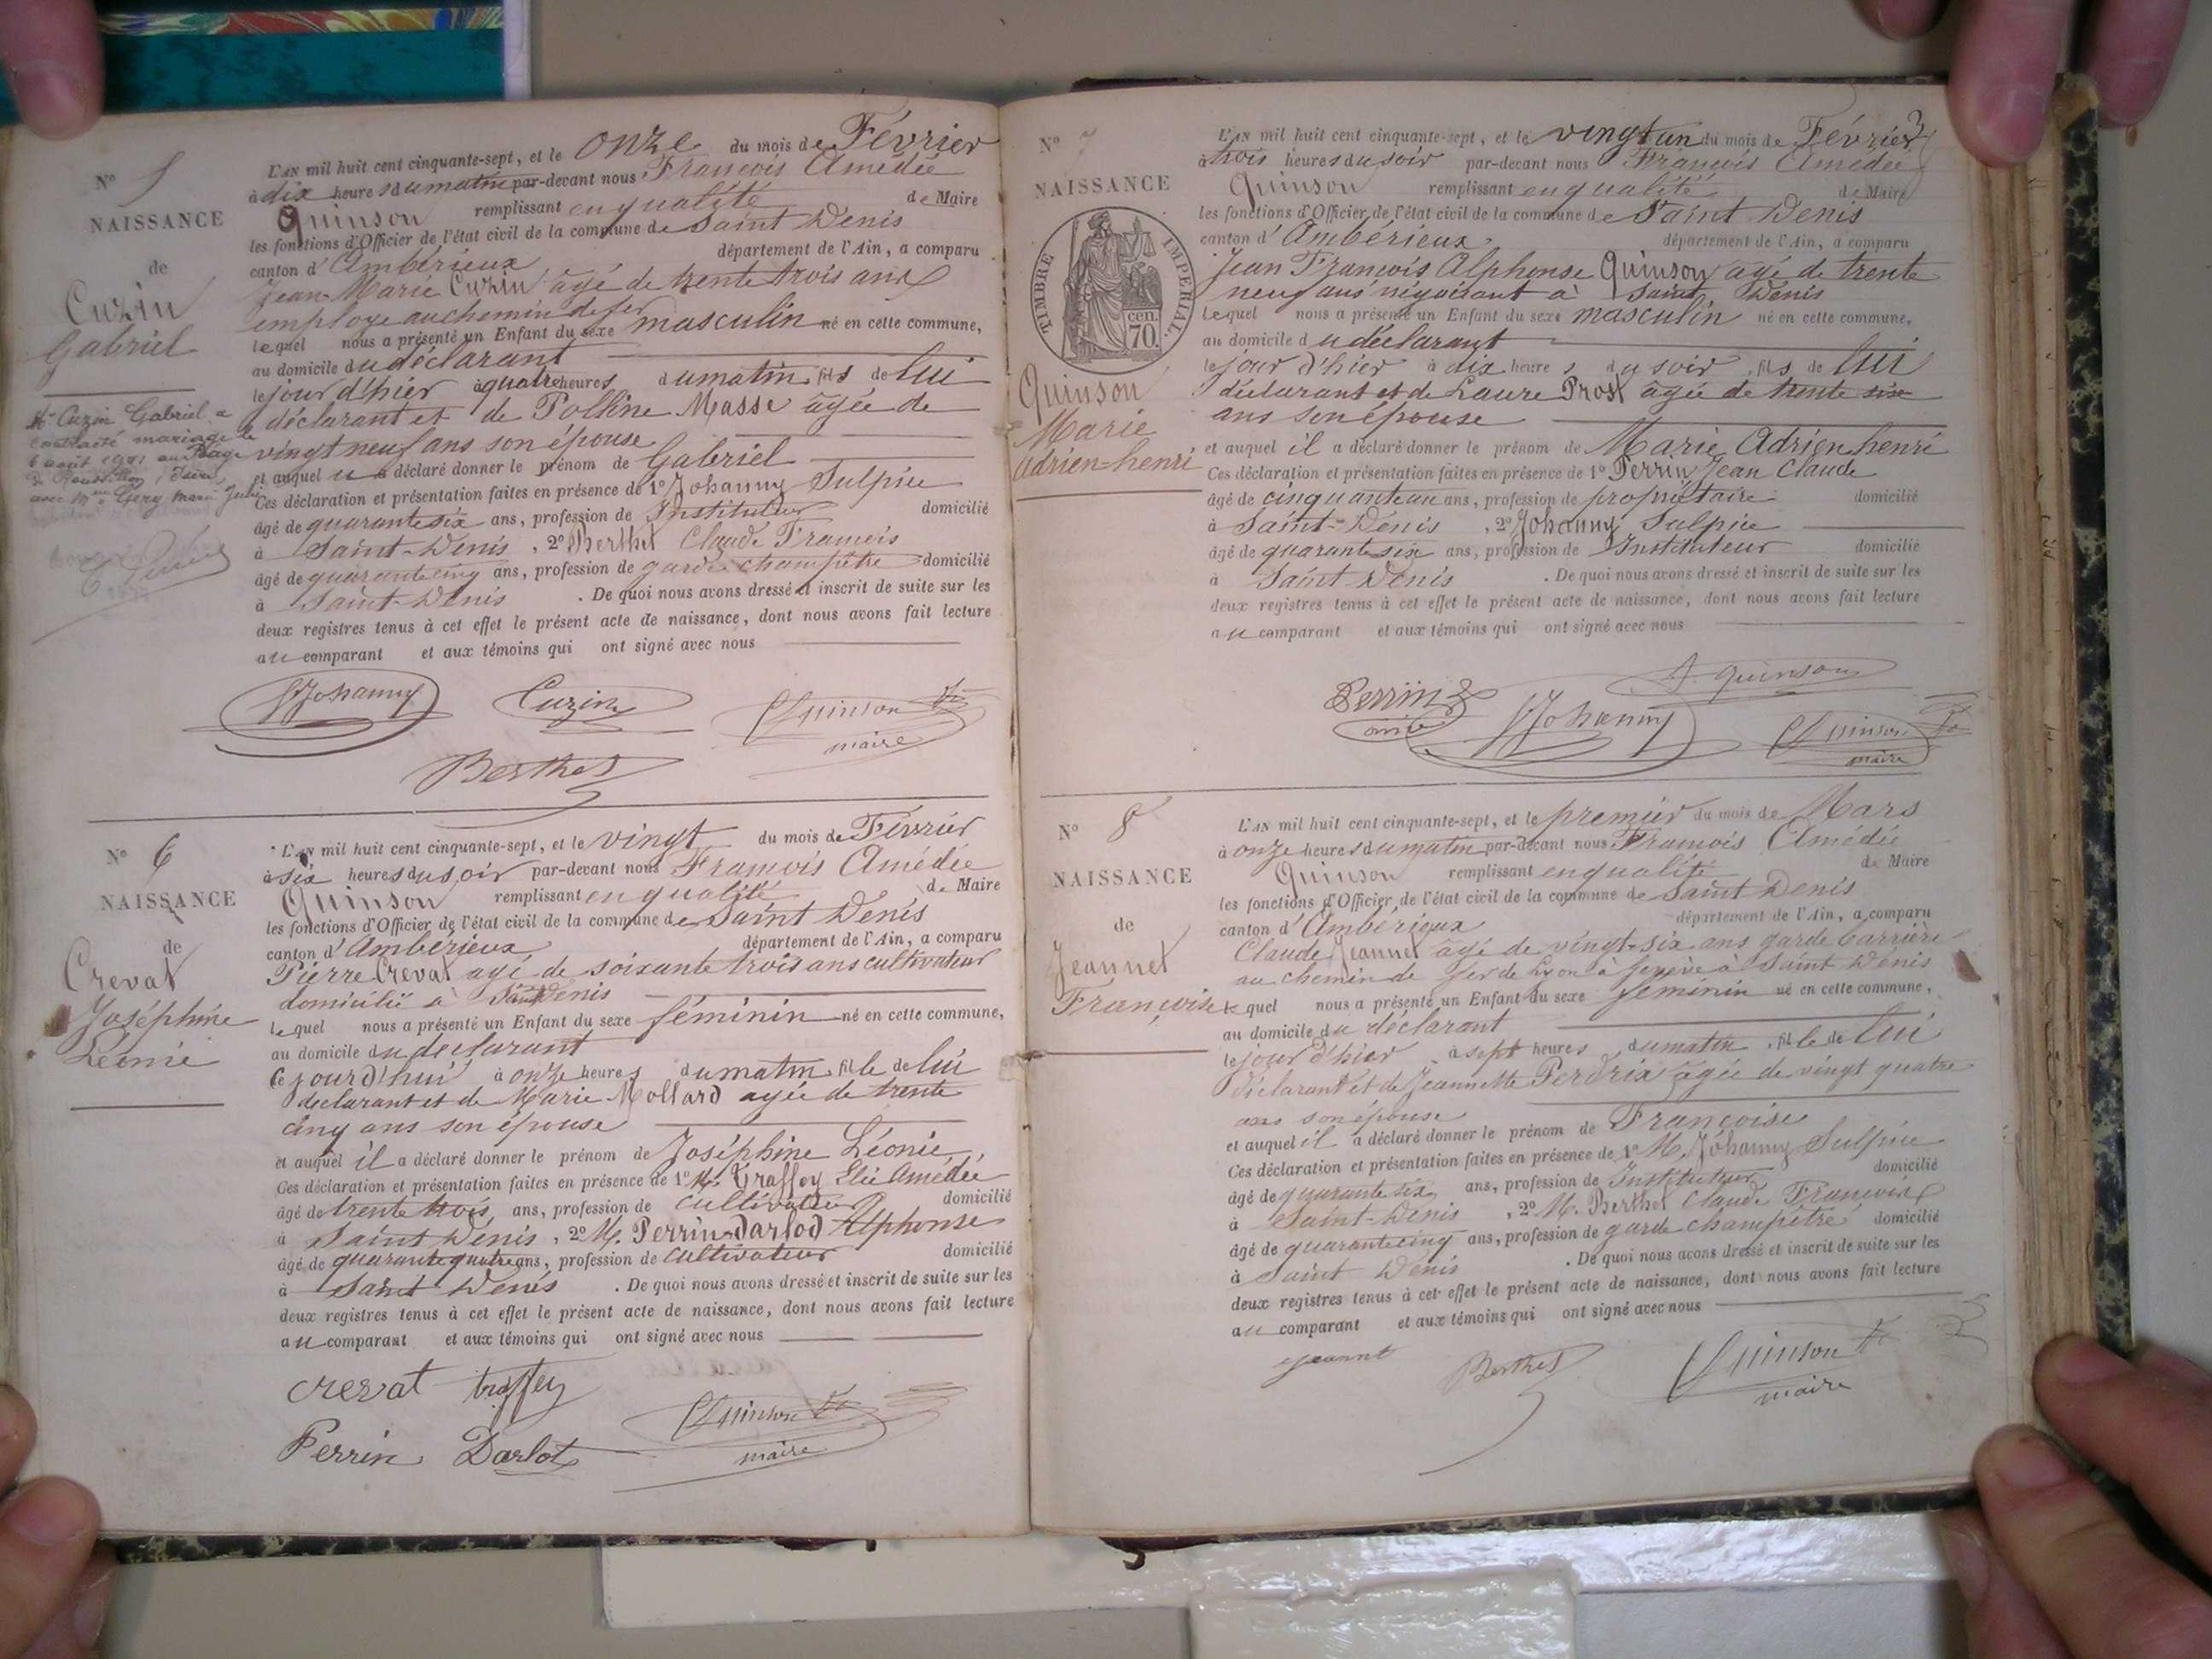 Nº 5
NAISSANCE
de
Cuzin
Gabriel
Mr Cuzin Gabriel a
contracté mariage le
6 août au Péage
de Roussillon, Isère,
avec Melle Gery Marie
L'AN mil huit cent cinquante-sept, et le onze du mois de Février
à dix heures du matin par-devant nous François Amédée
Quinson remplissant en qualité de Maire
les fonctions d'Officier de l'état civil de la commune de Saint Denis
canton d'Ambérieux département de l'Ain, a comparu
Jean-Marie Cuzin âgé de trente trois ans
employé au chemin de fer
lequel nous a présenté un Enfant du sexe masculin né en cette commune,
au domicile du déclarant
le jour d'hier à quatre heures du matin fils de lui
déclarant et de Polline Masse âgée de
vingt neuf ans son épouse
et auquel il a déclaré donner le prénom de Gabriel
Ces déclaration et présentation faites en présence de 1º Johanny Sulpice
âgé de quarante six ans, profession de Instituteur domicilié
à Saint-Denis, 2º Berthet Claude François
âgé de quarante cinq ans, profession de garde champêtre domicilié
à Saint-Denis. De quoi nous avons dressé et inscrit de suite sur les
deux registres tenus à cet effet le présent acte de naissance, dont nous avons fait lecture
au comparant et aux témoins qui ont signé avec nous
Johanny Cuzin Quinson
maire
Berthet
Nº 6
NAISSANCE
de
Crevat
Joséphine
Léonie
L'AN mil huit cent cinquante-sept, et le vingt du mois de Février
à six heures du soir par-devant nous François Amédée
Quinson remplissant en qualité de Maire
les fonctions d'Officier de l'état civil de la commune de Saint Denis
canton d'Ambérieux département de l'Ain, a comparu
Pierre Crevat agé de soixante trois ans cultivateur
domicilié à Saint Denis
lequel nous a présenté un Enfant du sexe féminin né en cette commune,
au domicile du déclarant
le jourd'hui à onze heures du matin fille de lui
déclarant et de Marie Mollard agée de trente
cinq ans son épouse
et auquel il a déclaré donner le prénom de Joséphine Léonie
Ces déclaration et présentation faites en présence de 1º M. Traffey Elie Amédée
âgé de trente trois ans, profession de cultivateur domicilié
à Saint Denis, 2º M. Perrin-Darlod Alphonse
âgé de quarante quatre ans, profession de cultivateur domicilié
à Saint Denis. De quoi nous avons dressé et inscrit de suite sur les
deux registres tenus à cet effet le présent acte de naissance, dont nous avons fait lecture
au comparant et aux témoins qui ont signé avec nous
crevat traffey
Quinson
Perrin Darlot maire
Nº 7
NAISSANCE
TIMBRE IMPÉRIAL
70 cen.
Quinson
Marie
Adrien-henri
L'AN mil huit cent cinquante-sept, et le vingt un du mois de Février
à trois heures du soir par-devant nous François Amédée
Quinson remplissant en qualité de Maire
les fonctions d'Officier de l'état civil de la commune de Saint Denis
canton d'Ambérieux département de l'Ain, a comparu
Jean François Alphonse Quinson agé de trente
neuf ans négociant à Saint Denis
Lequel nous a présenté un Enfant du sexe masculin né en cette commune,
au domicile du déclarant
le jour d'hier à dix heures du soir fils de lui
déclarant et de Laure Prost agée de trente six
ans son épouse
et auquel il a déclaré donner le prénom de Marie Adrien henri
Ces déclaration et présentation faites en présence de 1º Perrin Jean Claude
âgé de cinquante un ans, profession de propriétaire domicilié
à Saint-Denis, 2º Johanny Sulpice
âgé de quarante six ans, profession de Instituteur domicilié
à Saint Denis. De quoi nous avons dressé et inscrit de suite sur les
deux registres tenus à cet effet le présent acte de naissance, dont nous avons fait lecture
au comparant et aux témoins qui ont signé avec nous
A. Quinson
Perrin
ainé Johanny Quinson
maire
Nº 8
NAISSANCE
de
Jeannet
Françoise
L'AN mil huit cent cinquante-sept, et le premier du mois de Mars
à onze heures du matin par-devant nous François Amédée
Quinson remplissant en qualité de Maire
les fonctions d'Officier de l'état civil de la commune de Saint Denis
canton d'Ambérieux département de l'Ain, a comparu
Claude Jeannet âgé de vingt-six ans garde barrière
au chemin de fer de Lyon à Genève à Saint Denis
lequel nous a présenté un Enfant du sexe féminin né en cette commune,
au domicile du déclarant
le jour d'hier à sept heures du matin fille de lui
déclarant et de Jeannette Perdrix agée de vingt quatre
ans son épouse
et auquel il a déclaré donner le prénom de Françoise
Ces déclaration et présentation faites en présence de 1º M. Johanny Sulpice
âgé de quarante six ans, profession de Instituteur domicilié
à Saint-Denis, 2º M. Berthet Claude François
âgé de quarante cinq ans, profession de garde champêtre domicilié
à Saint Denis. De quoi nous avons dressé et inscrit de suite sur les
deux registres tenus à cet effet le présent acte de naissance, dont nous avons fait lecture
au comparant et aux témoins qui ont signé avec nous
Jeannet Berthet Quinson
maire